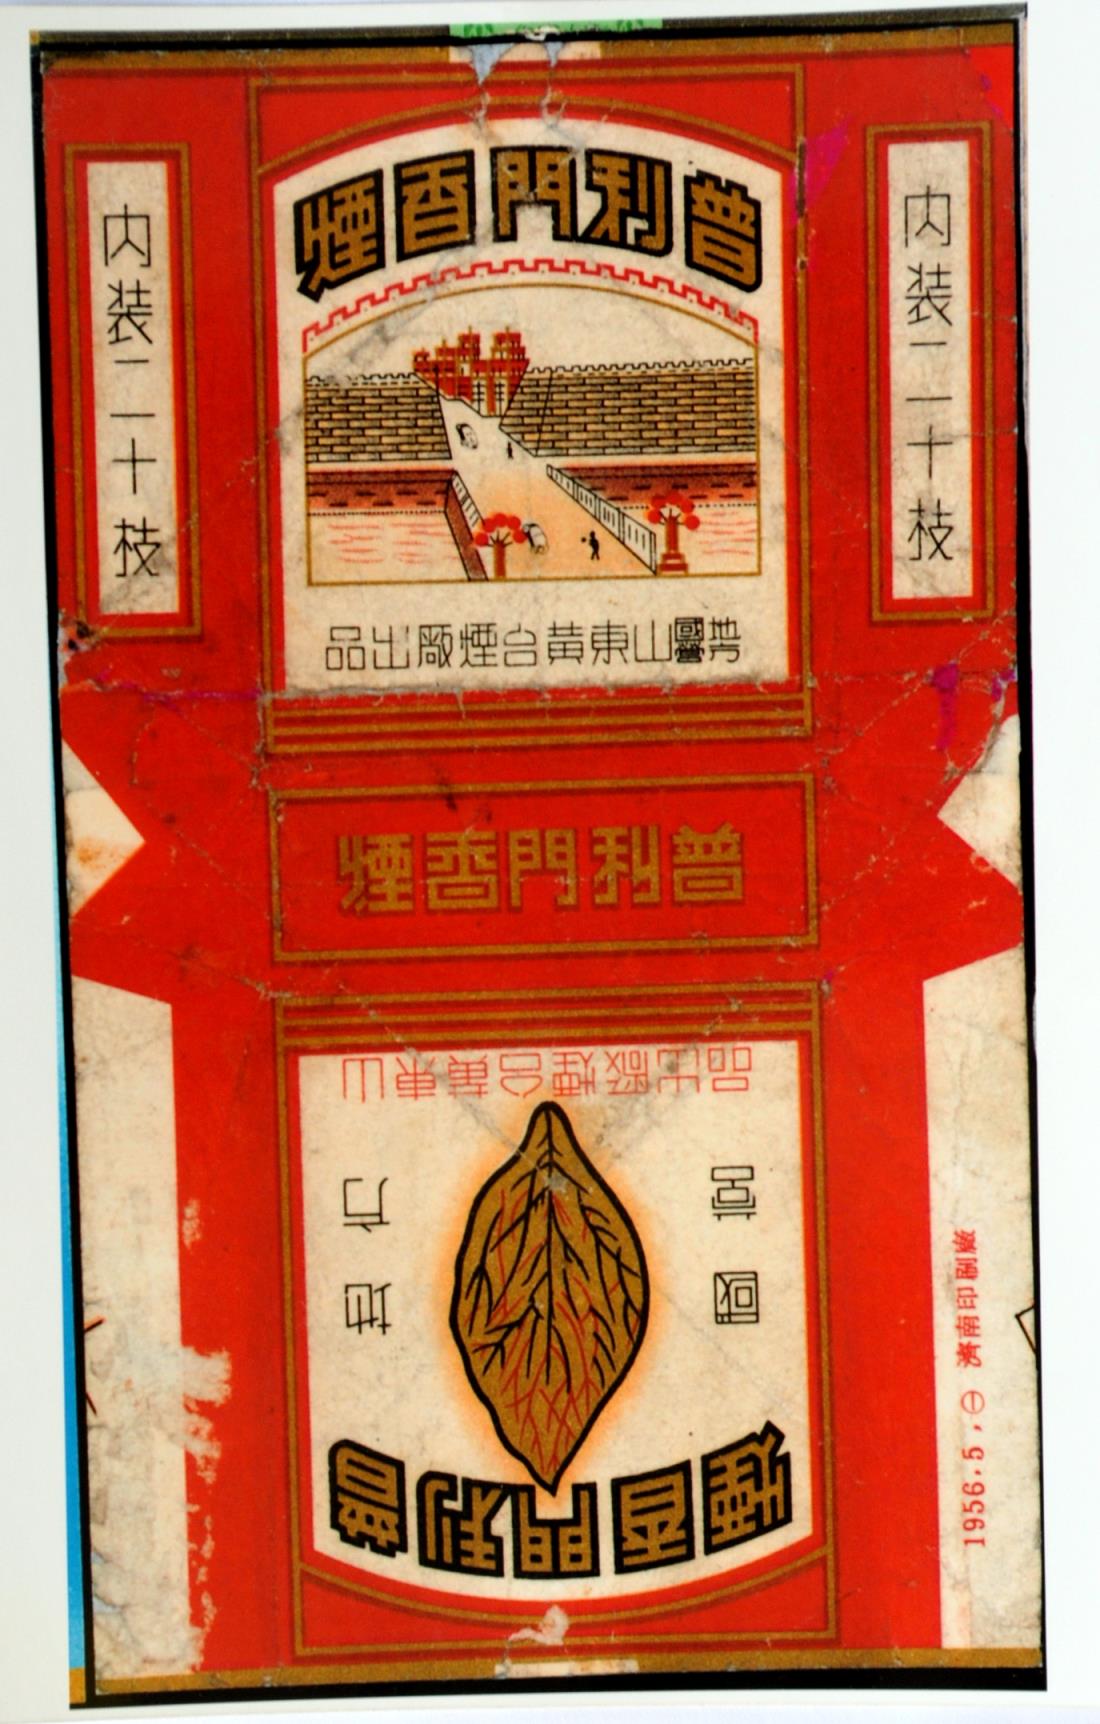 普利門香煙
地方國營山東黄台煙廠出品
内装二十枝
内装二十枝
普利門香煙
普利門香煙
地方
國營
山東黄台煙廠出品
1956.5,⊖ 濟南印刷廠